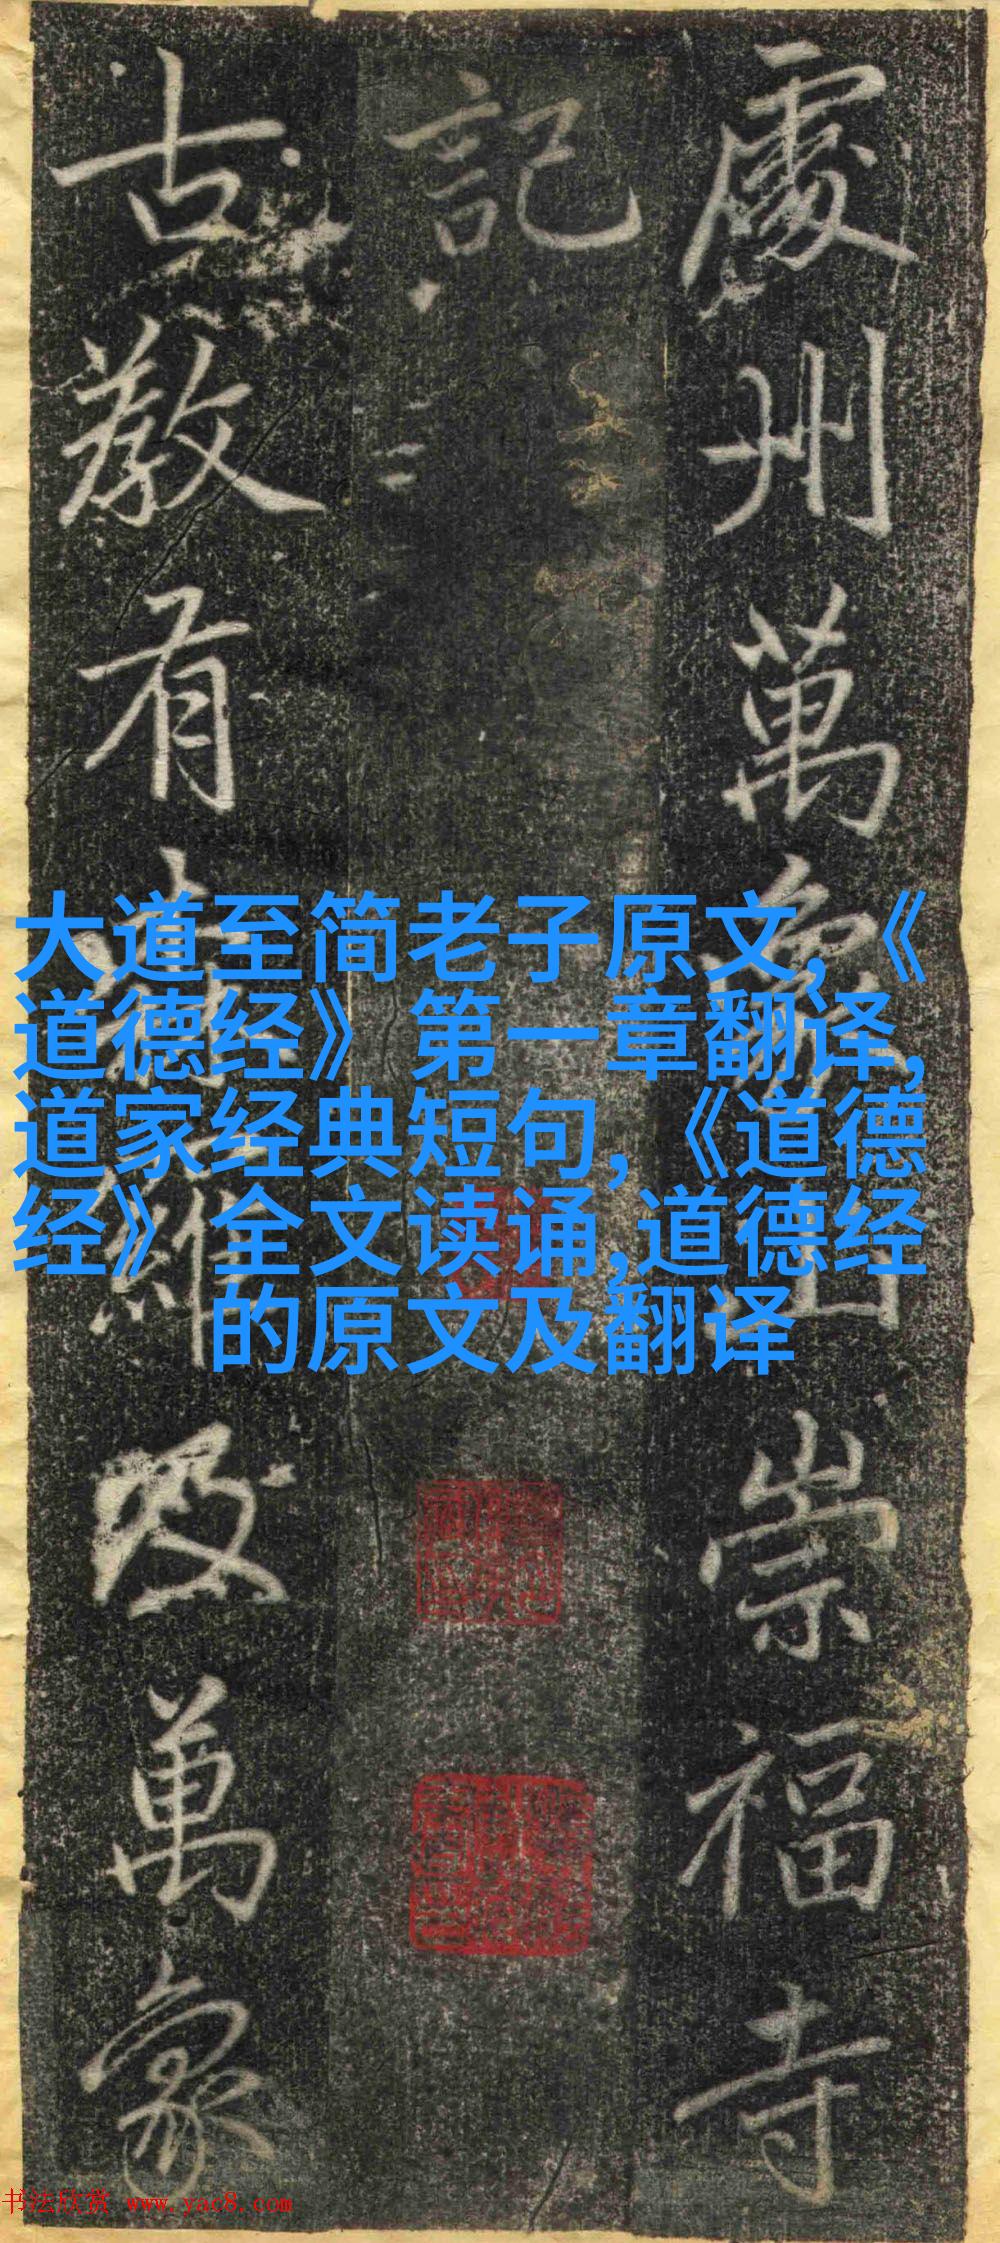 處州萬象山崇福寺
記
古教有及萬象
大道至简老子原文,《
道德经》第一章翻译,
道家经典短句,《道德
经》全文读诵,道德经
的原文及翻译
书法欣赏 www.yac8.com